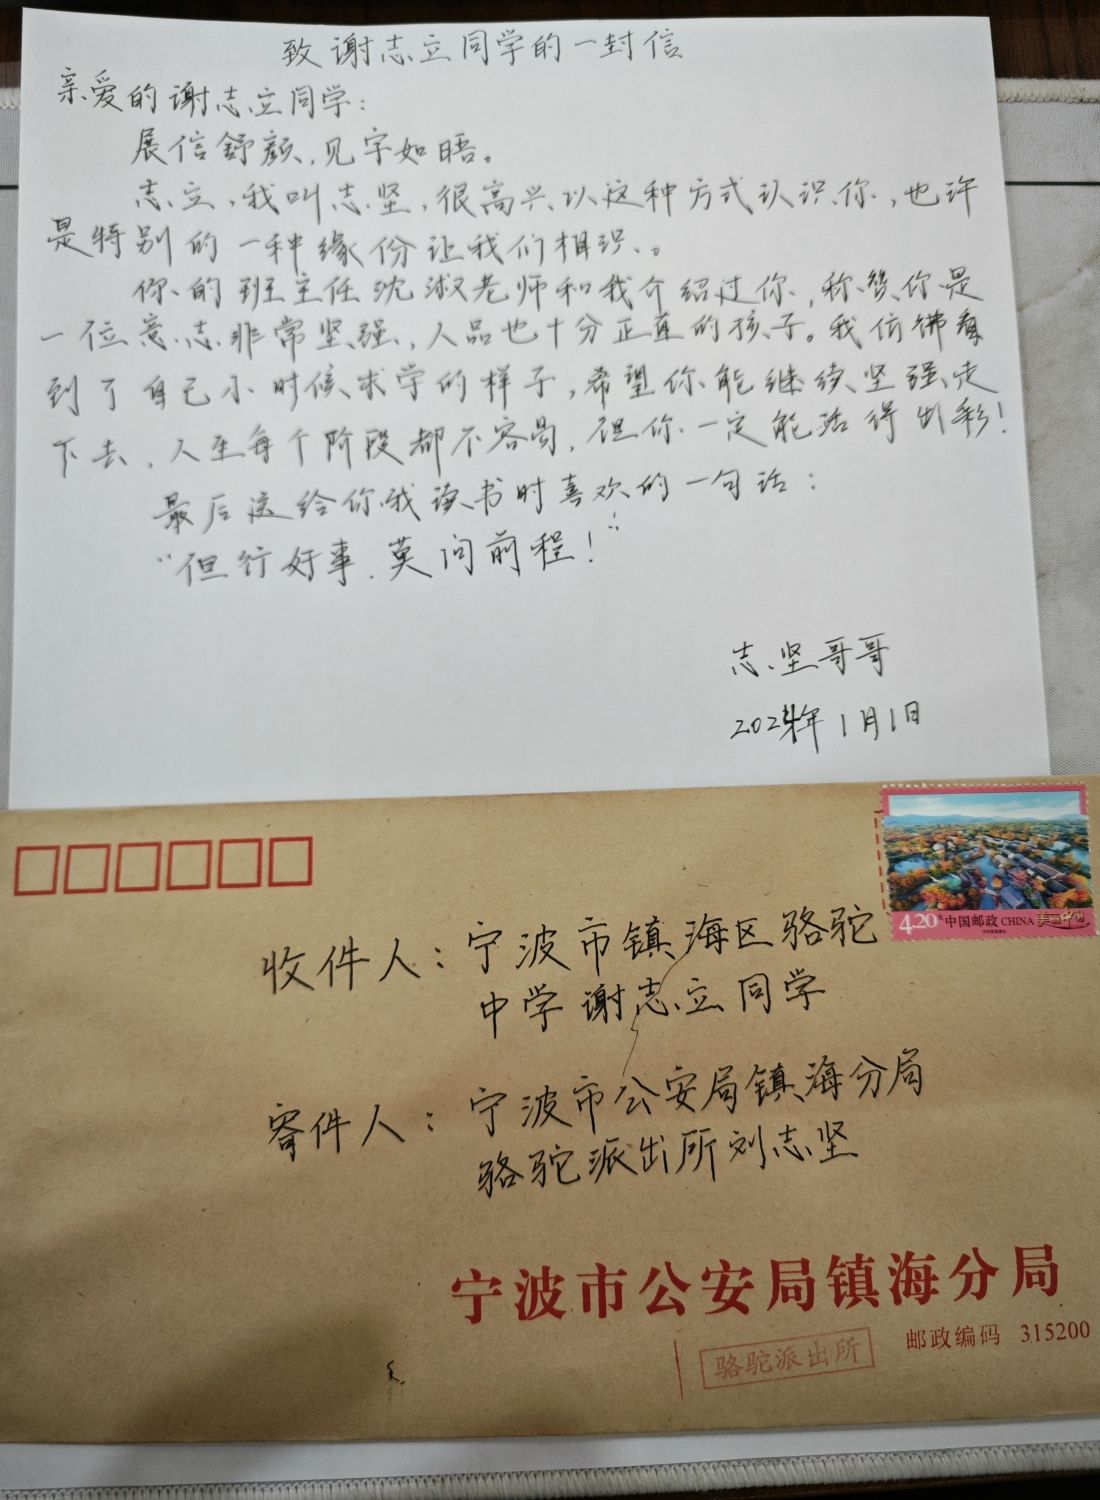 致谢志立同学的一封信
亲爱的谢志立同学：
展信舒颜，见字如晤。
志立，我叫志坚，很高兴以这种方式认识你，也许
是特别的一种缘份让我们相识。
你的班主任沈淑老师和我介绍过你，称赞你是
一位意志非常坚强，人品也十分正直的孩子。我仿佛看
到了自己小时候求学的样子，希望你能继续坚强走
下去，人生每个阶段都不容易，但你一定能活得出彩！
最后送给你我读书时喜欢的一句话：
“但行好事，莫问前程！”
志坚哥哥
2024年1月1日
4.20元 中国邮政 CHINA 美丽中国
收件人：宁波市镇海区骆驼
中学谢志立同学
寄件人：宁波市公安局镇海分局
骆驼派出所刘志坚
宁波市公安局镇海分局
邮政编码 315200
骆驼派出所